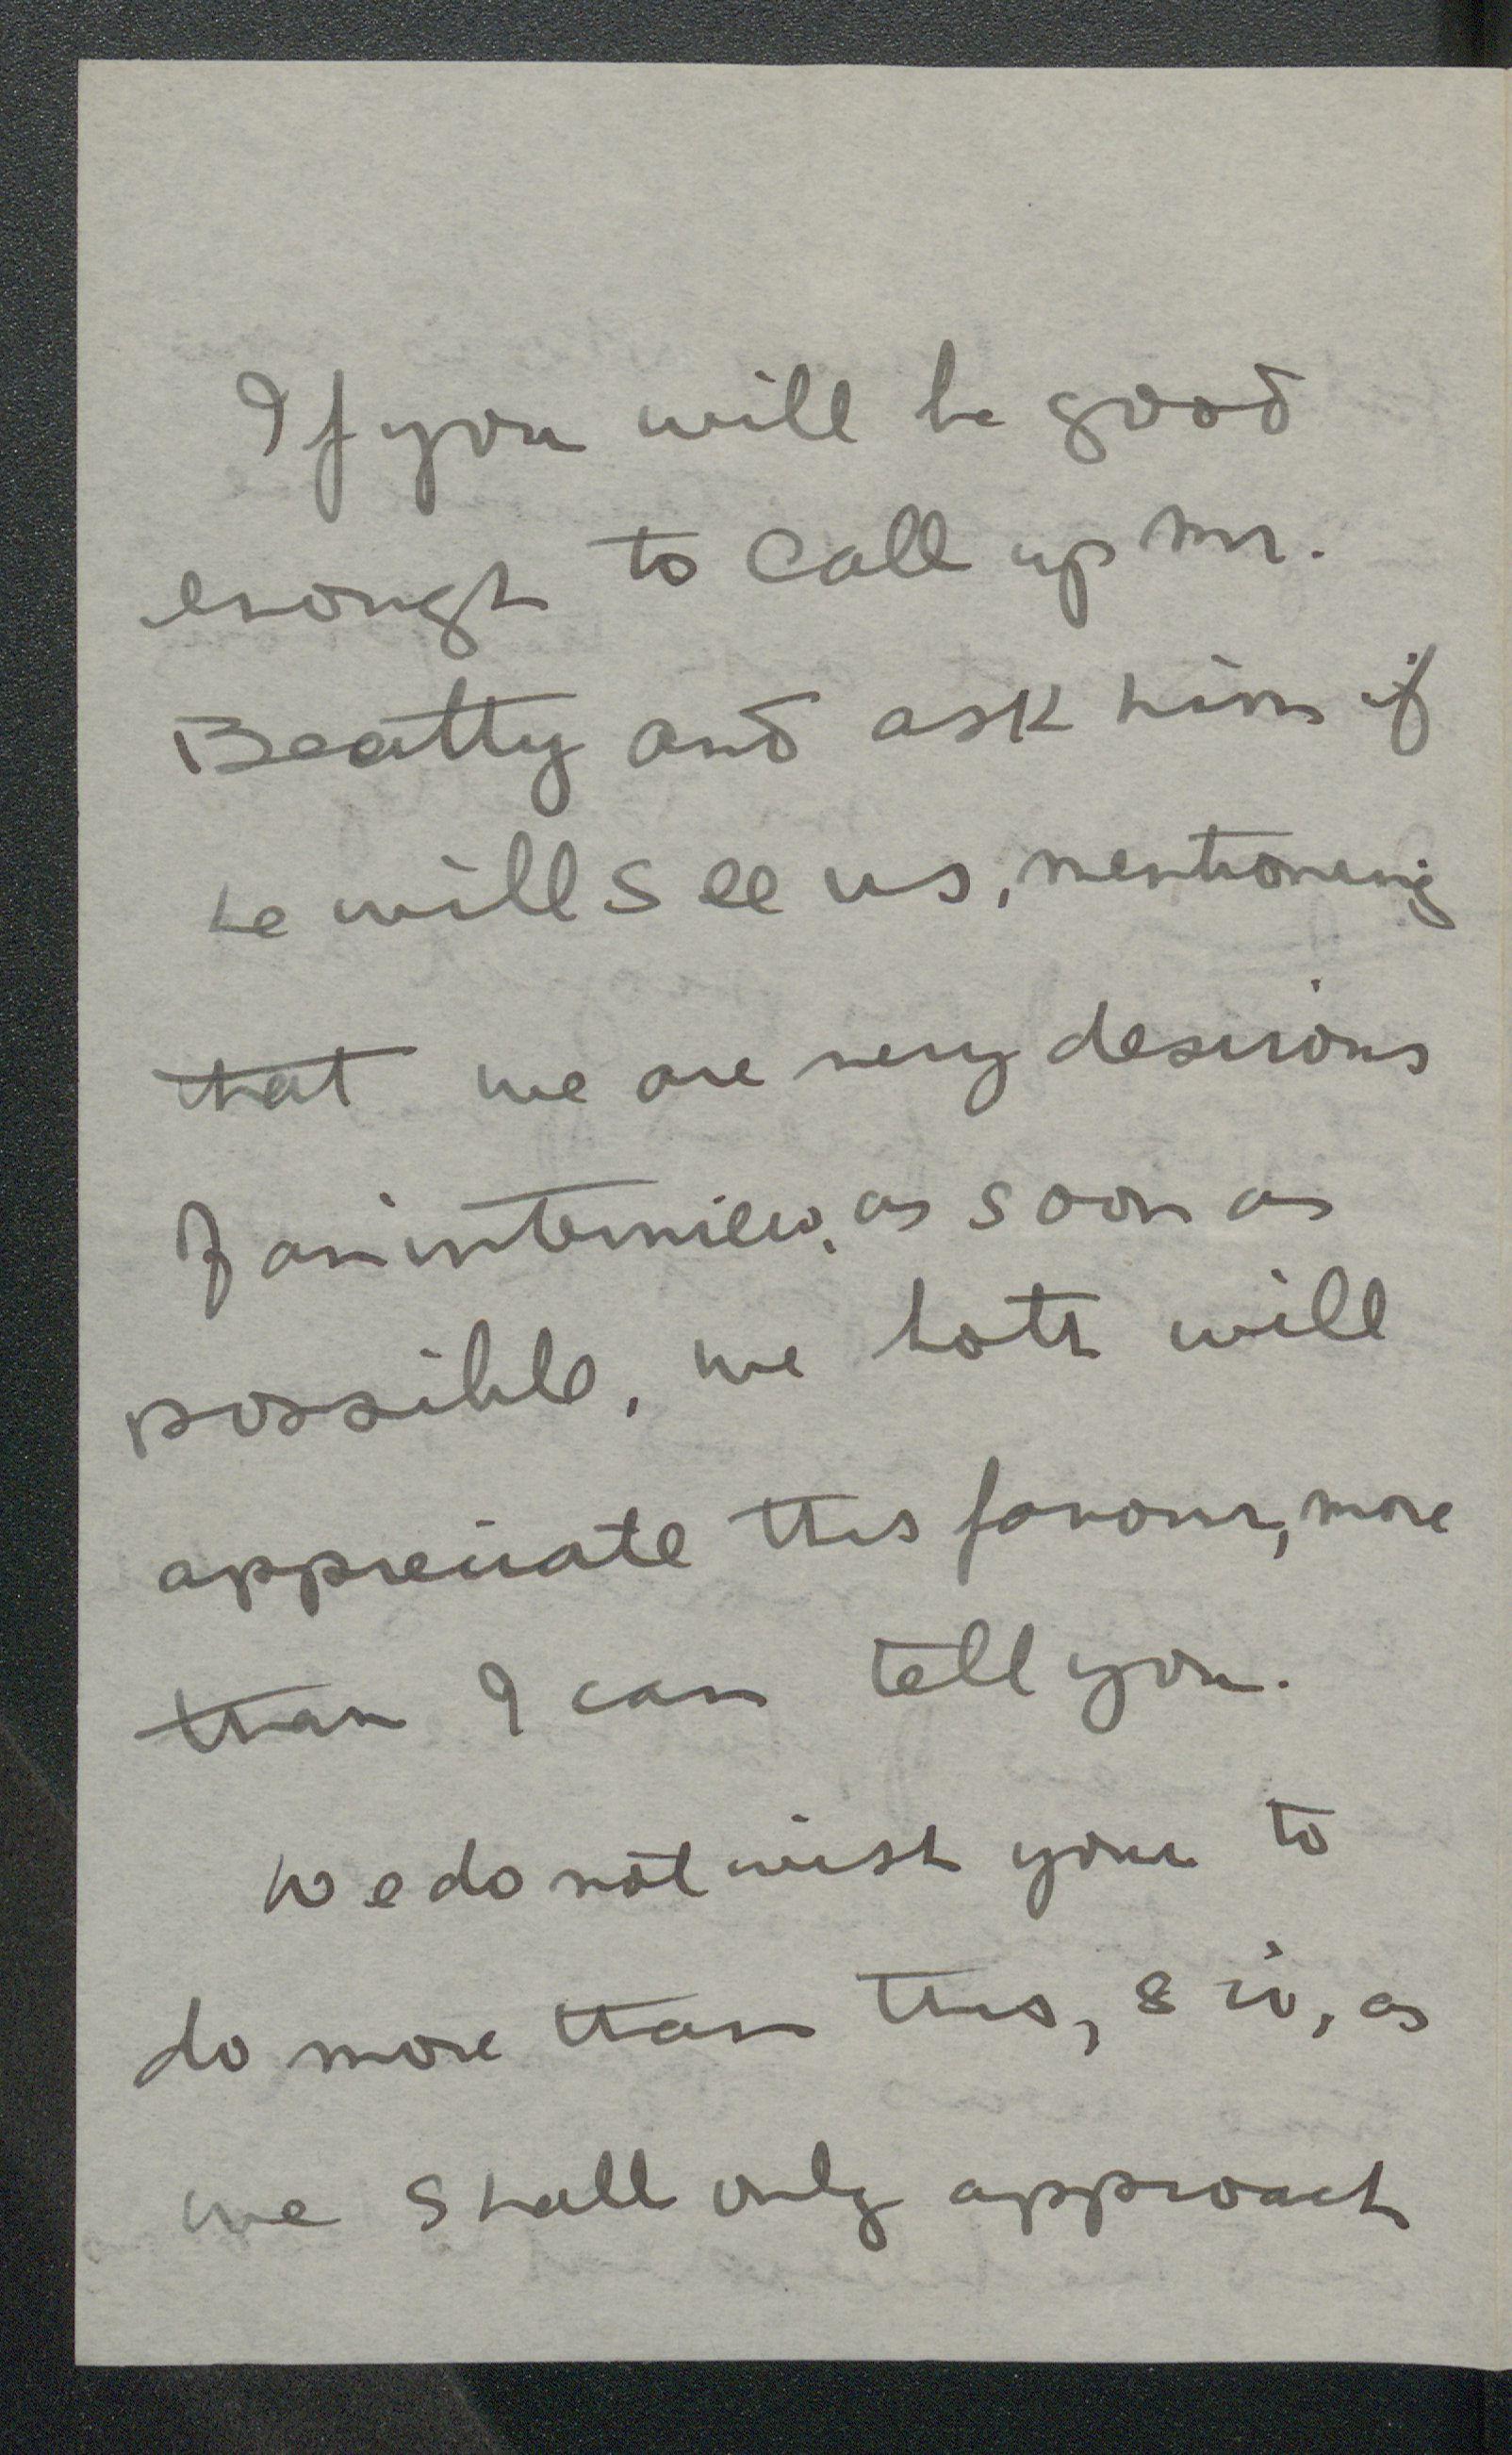 If you will be good
enough to call up Mr.
Beatty and ask him if
he will see us, mentioning
that we are very desirous
of an interview, as soon as
possible, we both will
appreciate this favour, more
than I can tell you.
We do not wish you to
do more than this, sir, as
we shall only approach